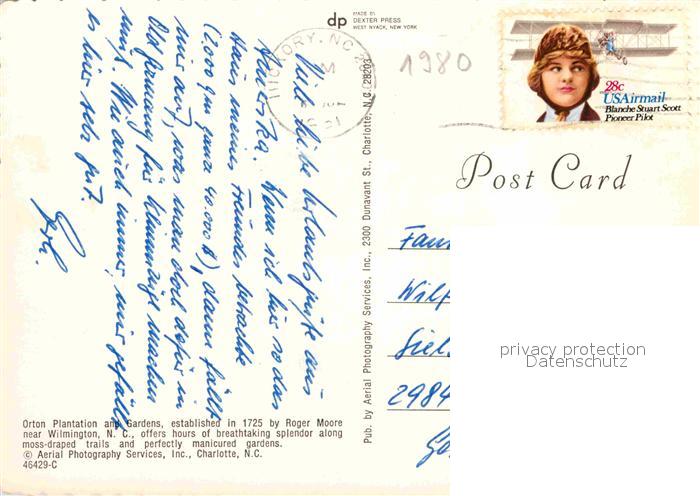 dp
MADE BY
DEXTER PRESS
WEST NYACK, NEW YORK
HICKORY, NC
1980
28c
USAirmail
Blanche Stuart Scott
Pioneer Pilot
Post Card
Viele liebe Urlaubsgrüße aus
Wenn ich hier so das
Haus meines Freundes betrachte
(2000 qm ganze 40.000 $), dann fällt
mir auf, was man doch dafür in
Old Germany für
muß. Wie auch immer, mir gefällt
es hier sehr gut.
Pub. by Aerial Photography Services, Inc., 2300 Dunavant St., Charlotte, N.C. 28203
Fam
Wilf
Siel
2984
privacy protection
Datenschutz
Orton Plantation and Gardens, established in 1725 by Roger Moore
near Wilmington, N. C., offers hours of breathtaking splendor along
moss-draped trails and perfectly manicured gardens.
© Aerial Photography Services, Inc., Charlotte, N.C.
46429-C